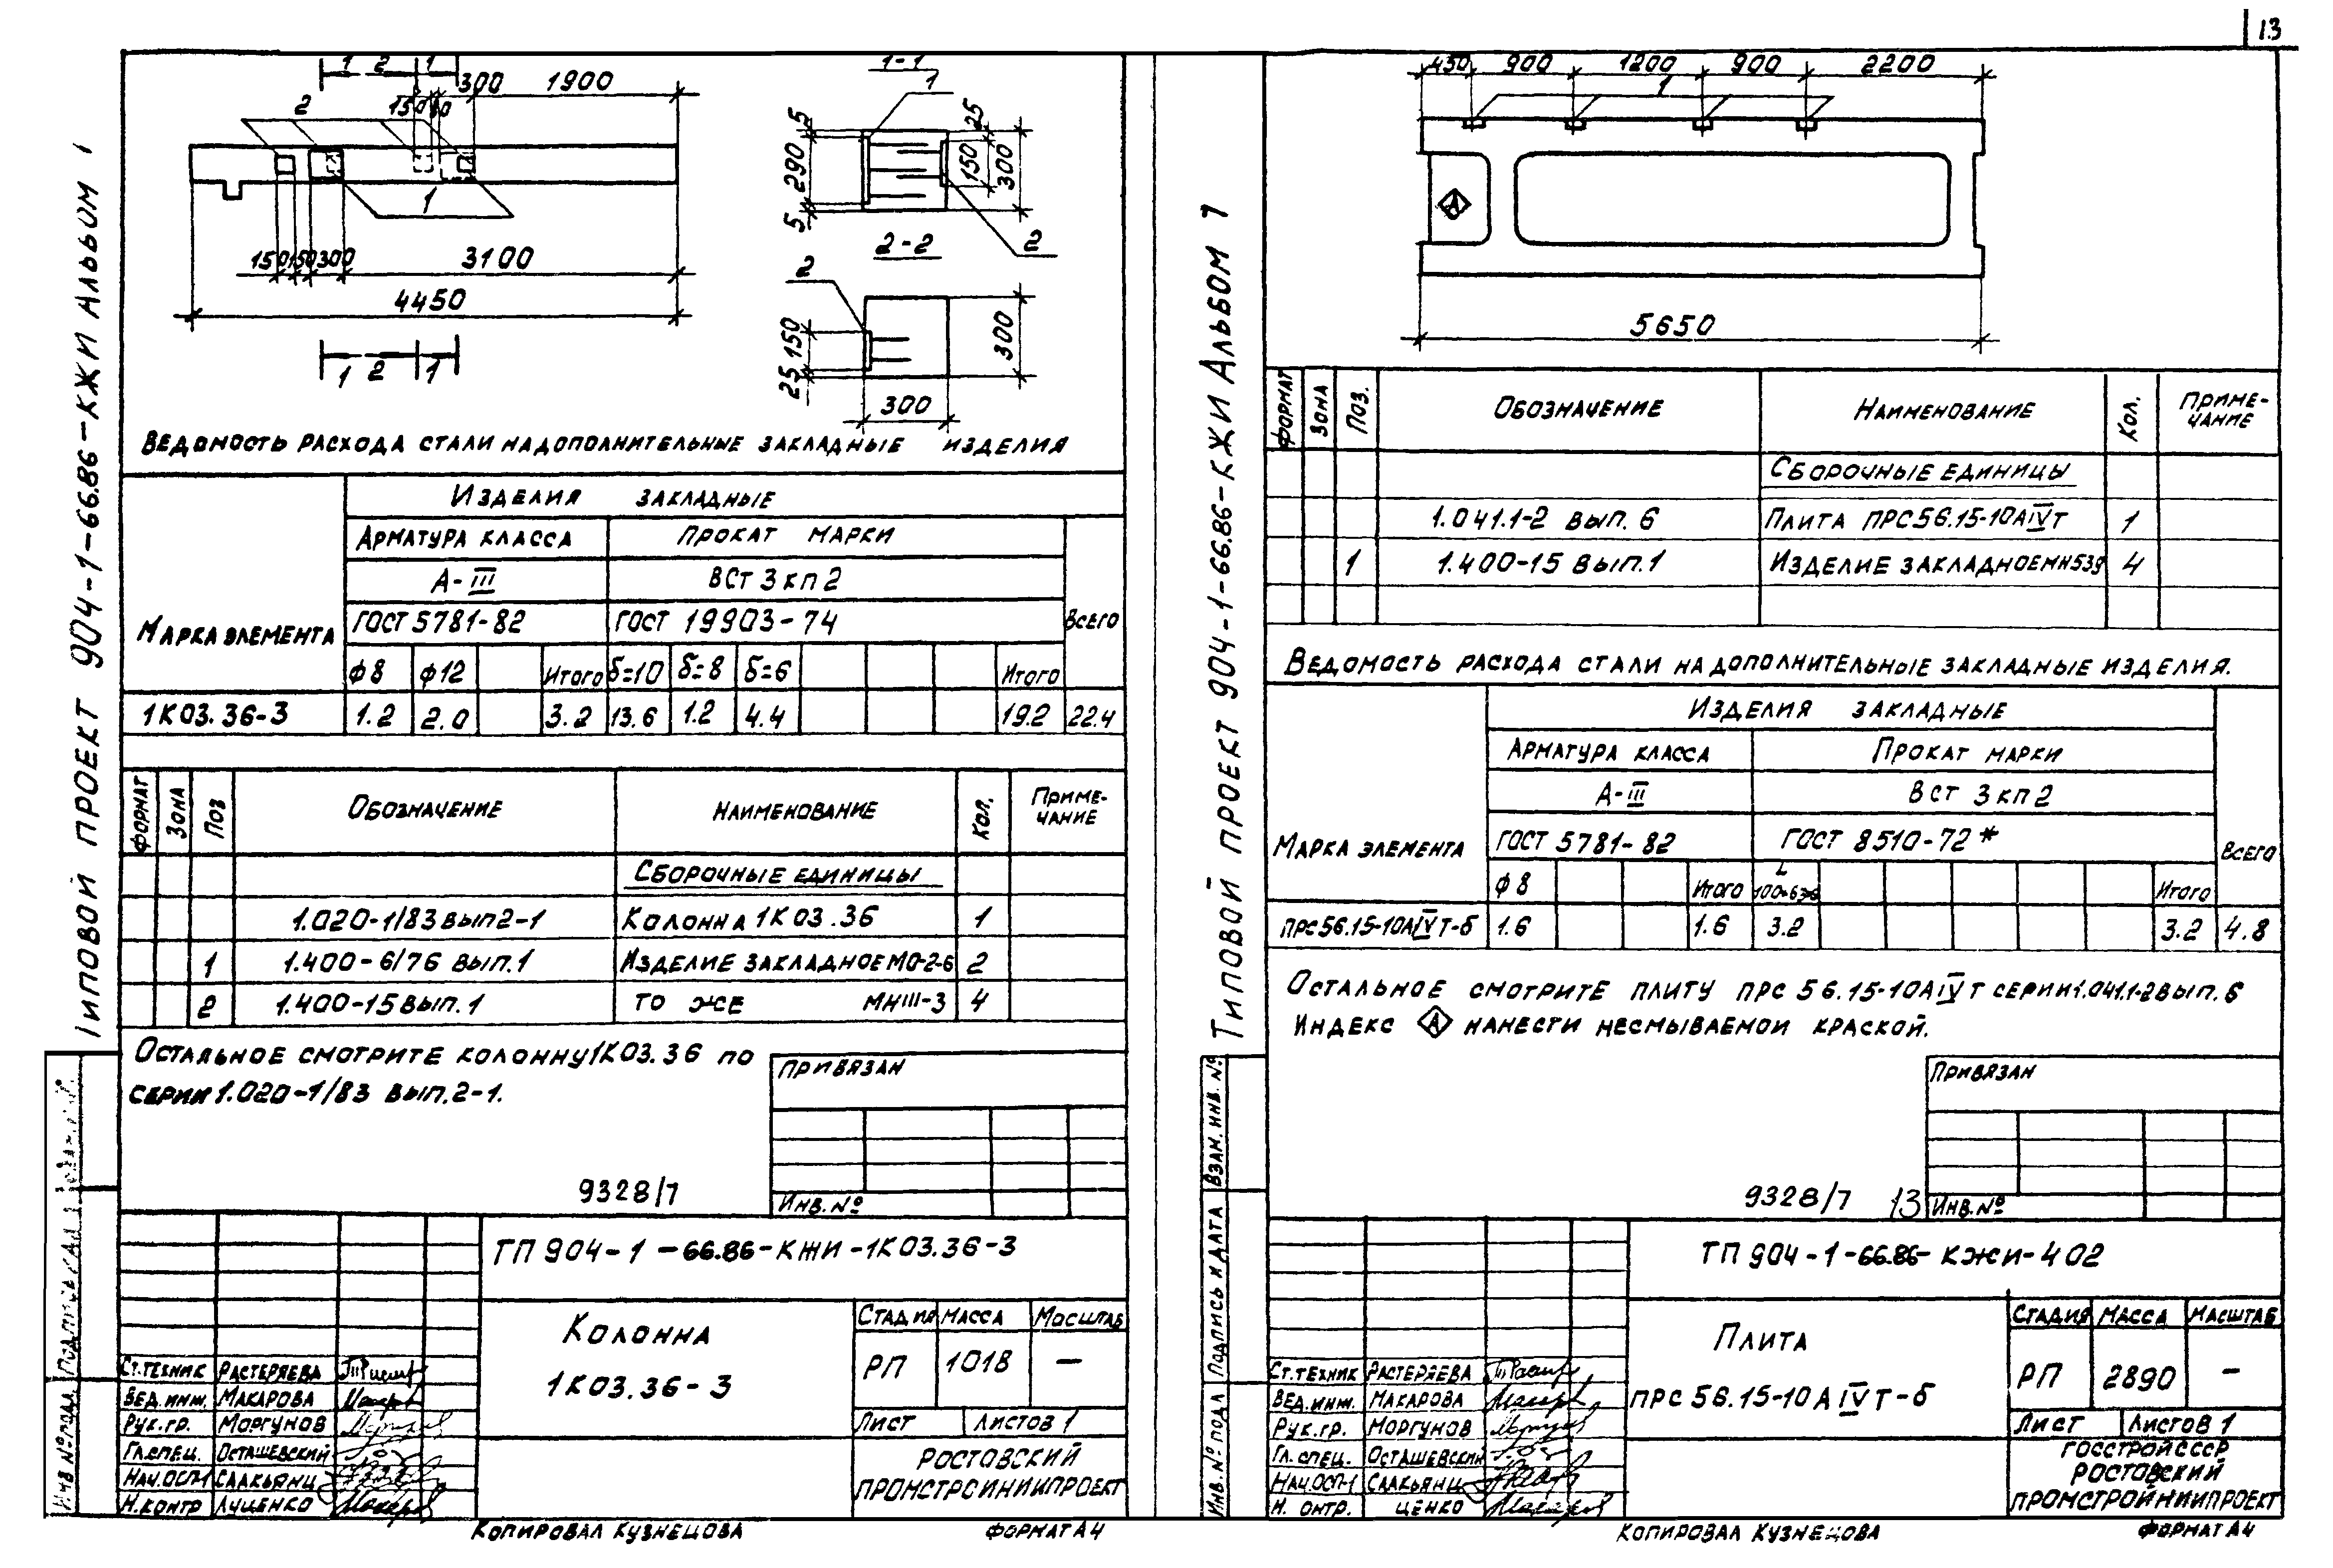 13
Типовой проект 904-1-66.86-КЖИ Альбом
1 2 1
300 1900
2 150
1
150 150 300 3100
4450
1 2 1
1-1
1
5 290 5
25 150 300
2
2-2
2
25 150
300
300
Ведомость расхода стали на дополнительные закладные изделия
Марка элемента
Изделия закладные
Арматура класса Прокат марки
А-III ВСт3кп2
ГОСТ 5781-82 ГОСТ 19903-74
Всего
ф8 ф12 Итого δ=10 δ=8 δ=6 Итого
1К03.36-3 1.2 2.0 3.2 13.6 1.2 4.4 19.2 22.4
Формат Зона Поз Обозначение Наименование Кол. Примечание
Сборочные единицы
1.020-1/83 вып2-1 Колонна 1К03.36 1
1 1.400-6/76 вып.1 Изделие закладное МО-2-6 2
2 1.400-15 вып.1 то же МН111-3 4
Остальное смотрите колонну 1К03.36 по
серии 1.020-1/83 вып.2-1.
Привязан
Инв. №
9328/7
ТП 904-1-66.86-КЖИ-1К03.36-3
Колонна
1К03.36-3
Стадия Масса Масштаб
РП 1018 —
Лист Листов 1
Ростовский
Промстройниипроект
Ст.техник Растеряева
Вед.инж. Макарова
Рук.гр. Моргунов
Гл.спец. Осташевский
Нач.ОСП-1 Саакьянц
Н.контр Луценко
Инв № подл. Подпись и дата
Копировал Кузнецова Формат А4
Типовой проект 904-1-66.86-КЖИ Альбом 7
450 900 1200 900 2200
1
А
5650
Формат Зона Поз. Обозначение Наименование Кол. Примечание
Сборочные единицы
1.041.1-2 вып. 6 Плита ПРС56.15-10АIVТ 1
1 1.400-15 вып.1 Изделие закладное МН539 4
Ведомость расхода стали на дополнительные закладные изделия.
Марка элемента
Изделия закладные
Арматура класса Прокат марки
А-III ВСт 3кп2
ГОСТ 5781-82 ГОСТ 8510-72*
Всего
ф8 Итого L 100×63×6 Итого
ПРС56.15-10АIVТ-б 1.6 1.6 3.2 3.2 4.8
Остальное смотрите плиту ПРС 56.15-10АIVТ серии 1.041.1-2 вып. 6
Индекс А нанести несмываемой краской.
Привязан
Инв. №
9328/7 13
ТП 904-1-66.86-КЖИ-402
Плита
ПРС 56.15-10АIVТ-б
Стадия Масса Масштаб
РП 2890 —
Лист Листов 1
Госстрой СССР
Ростовский
Промстройниипроект
Ст.техник Растеряева
Вед.инж. Макарова
Рук.гр. Моргунов
Гл.спец. Осташевский
Нач.ОСП-1 Саакьянц
Н. онтр. ценко
Инв.№ подл Подпись и дата Взам.инв.№
Копировал Кузнецова Формат А4